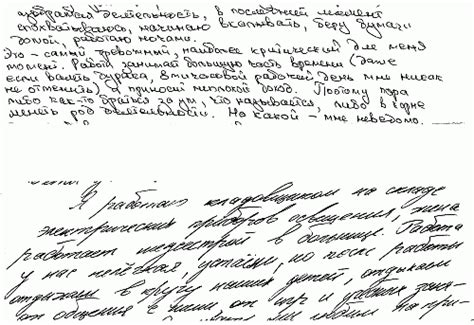 деятельность, в последний момент
спохватываюсь, начинаю вкалывать, беру бумаги
домой, работаю ночами.
Это – самый тревожный, наиболее критический для меня
момент. Работа занимает большую часть времени (даже
если валять дурака, 8-ми часовой рабочий день мне никак
не отменить) и приносит неплохой доход. Поэтому пора
либо как-то браться за ум, что называется, либо
менять род деятельности. Но какой – мне неведомо.
Я работаю кладовщиком на складе
электрических приборов освещения, жена
работает медсестрой в больнице. Работа
у нас нелёгкая, устаём, но после работы
отдыхаем в кругу наших детей, отдыхаем
от общения с ними от игр и
мы любим на при-